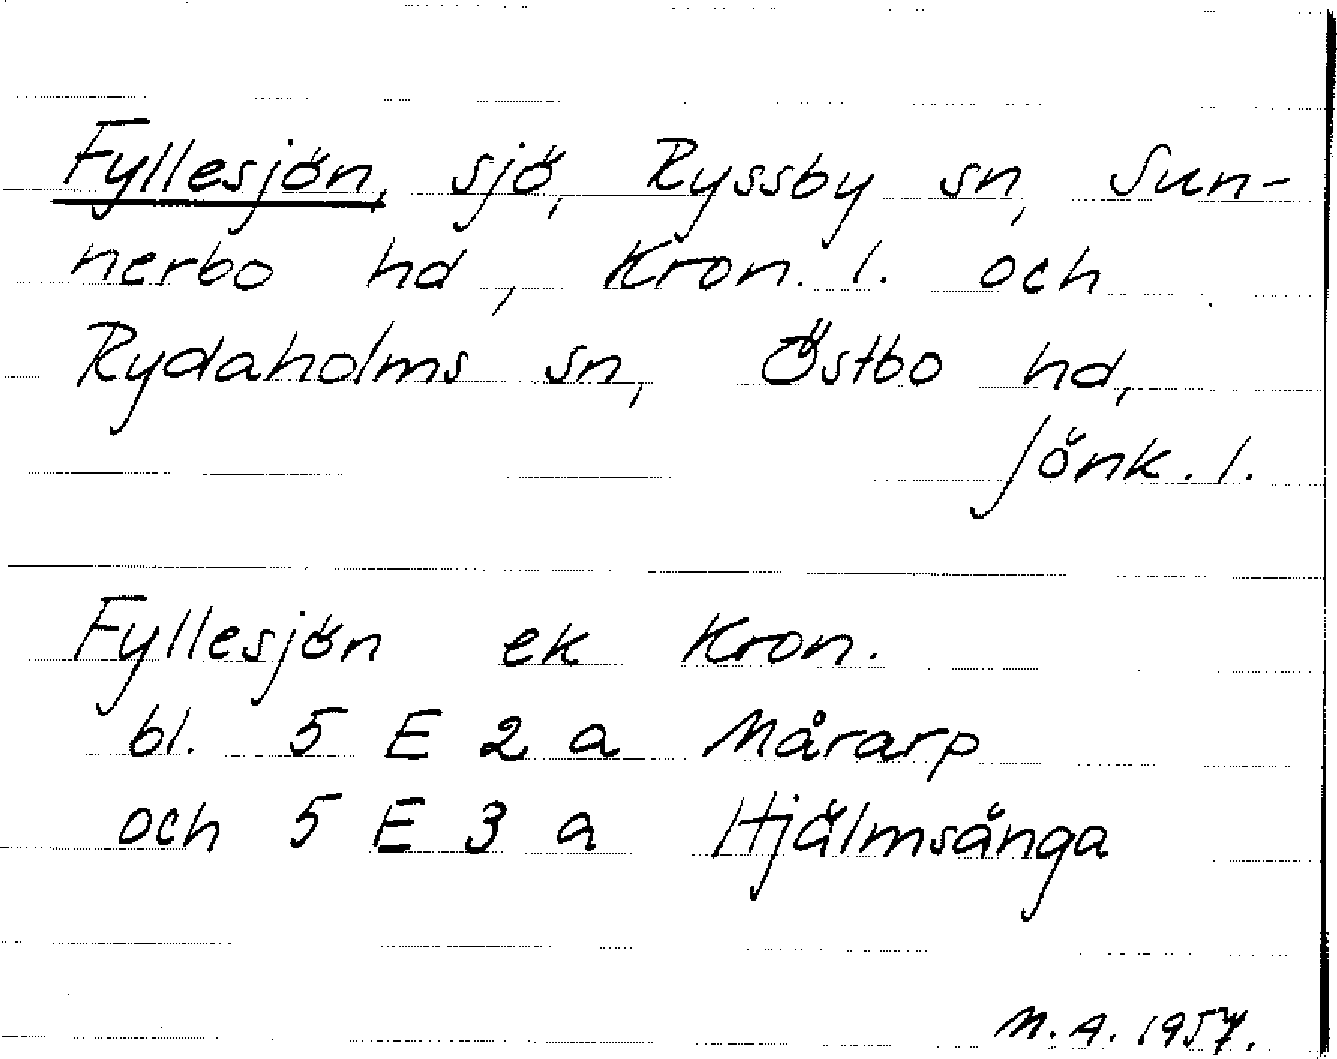 Fyllesjön, sjö, Ryssby sn, Sun-
nerbo hd, Kron. l. och
Rydaholms sn, Östbo hd,
Jönk. l.
Fyllesjön ek Kron.
bl. 5 E 2 a Mårarp
och 5 E 3 a Hjälmsänga
M. A. 1957.